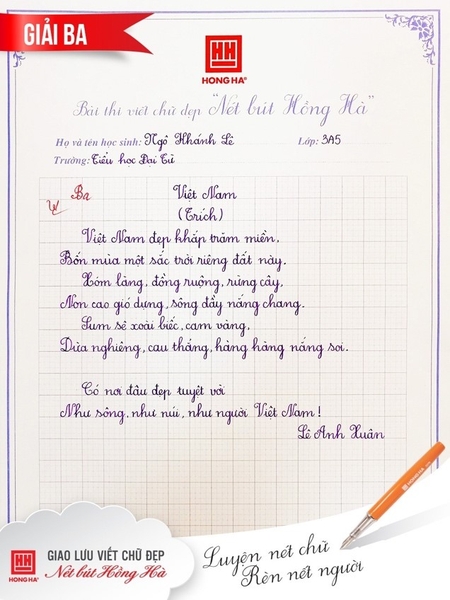 GIẢI BA
HH
HONG HA®
Bài thi viết chữ đẹp "Nét bút Hồng Hà"
Họ và tên học sinh: Ngô Khánh Lê Lớp: 3A5
Trường: Tiểu học Đại Từ
Ba
Việt Nam
(Trích)
Việt Nam đẹp khắp trăm miền,
Bốn mùa một sắc trời riêng đất này.
Xóm làng, đồng ruộng, rừng cây,
Non cao gió dựng, sông đầy nắng chang.
Sum sê xoài biếc, cam vàng,
Dừa nghiêng, cau thẳng, hàng hàng nắng soi.
Có nơi đâu đẹp tuyệt vời
Như sông, như núi, như người Việt Nam!
Lê Anh Xuân
HH
HONG HA®
GIAO LƯU VIẾT CHỮ ĐẸP
Nét bút Hồng Hà
Luyện nét chữ
Rèn nét người
HONG HA